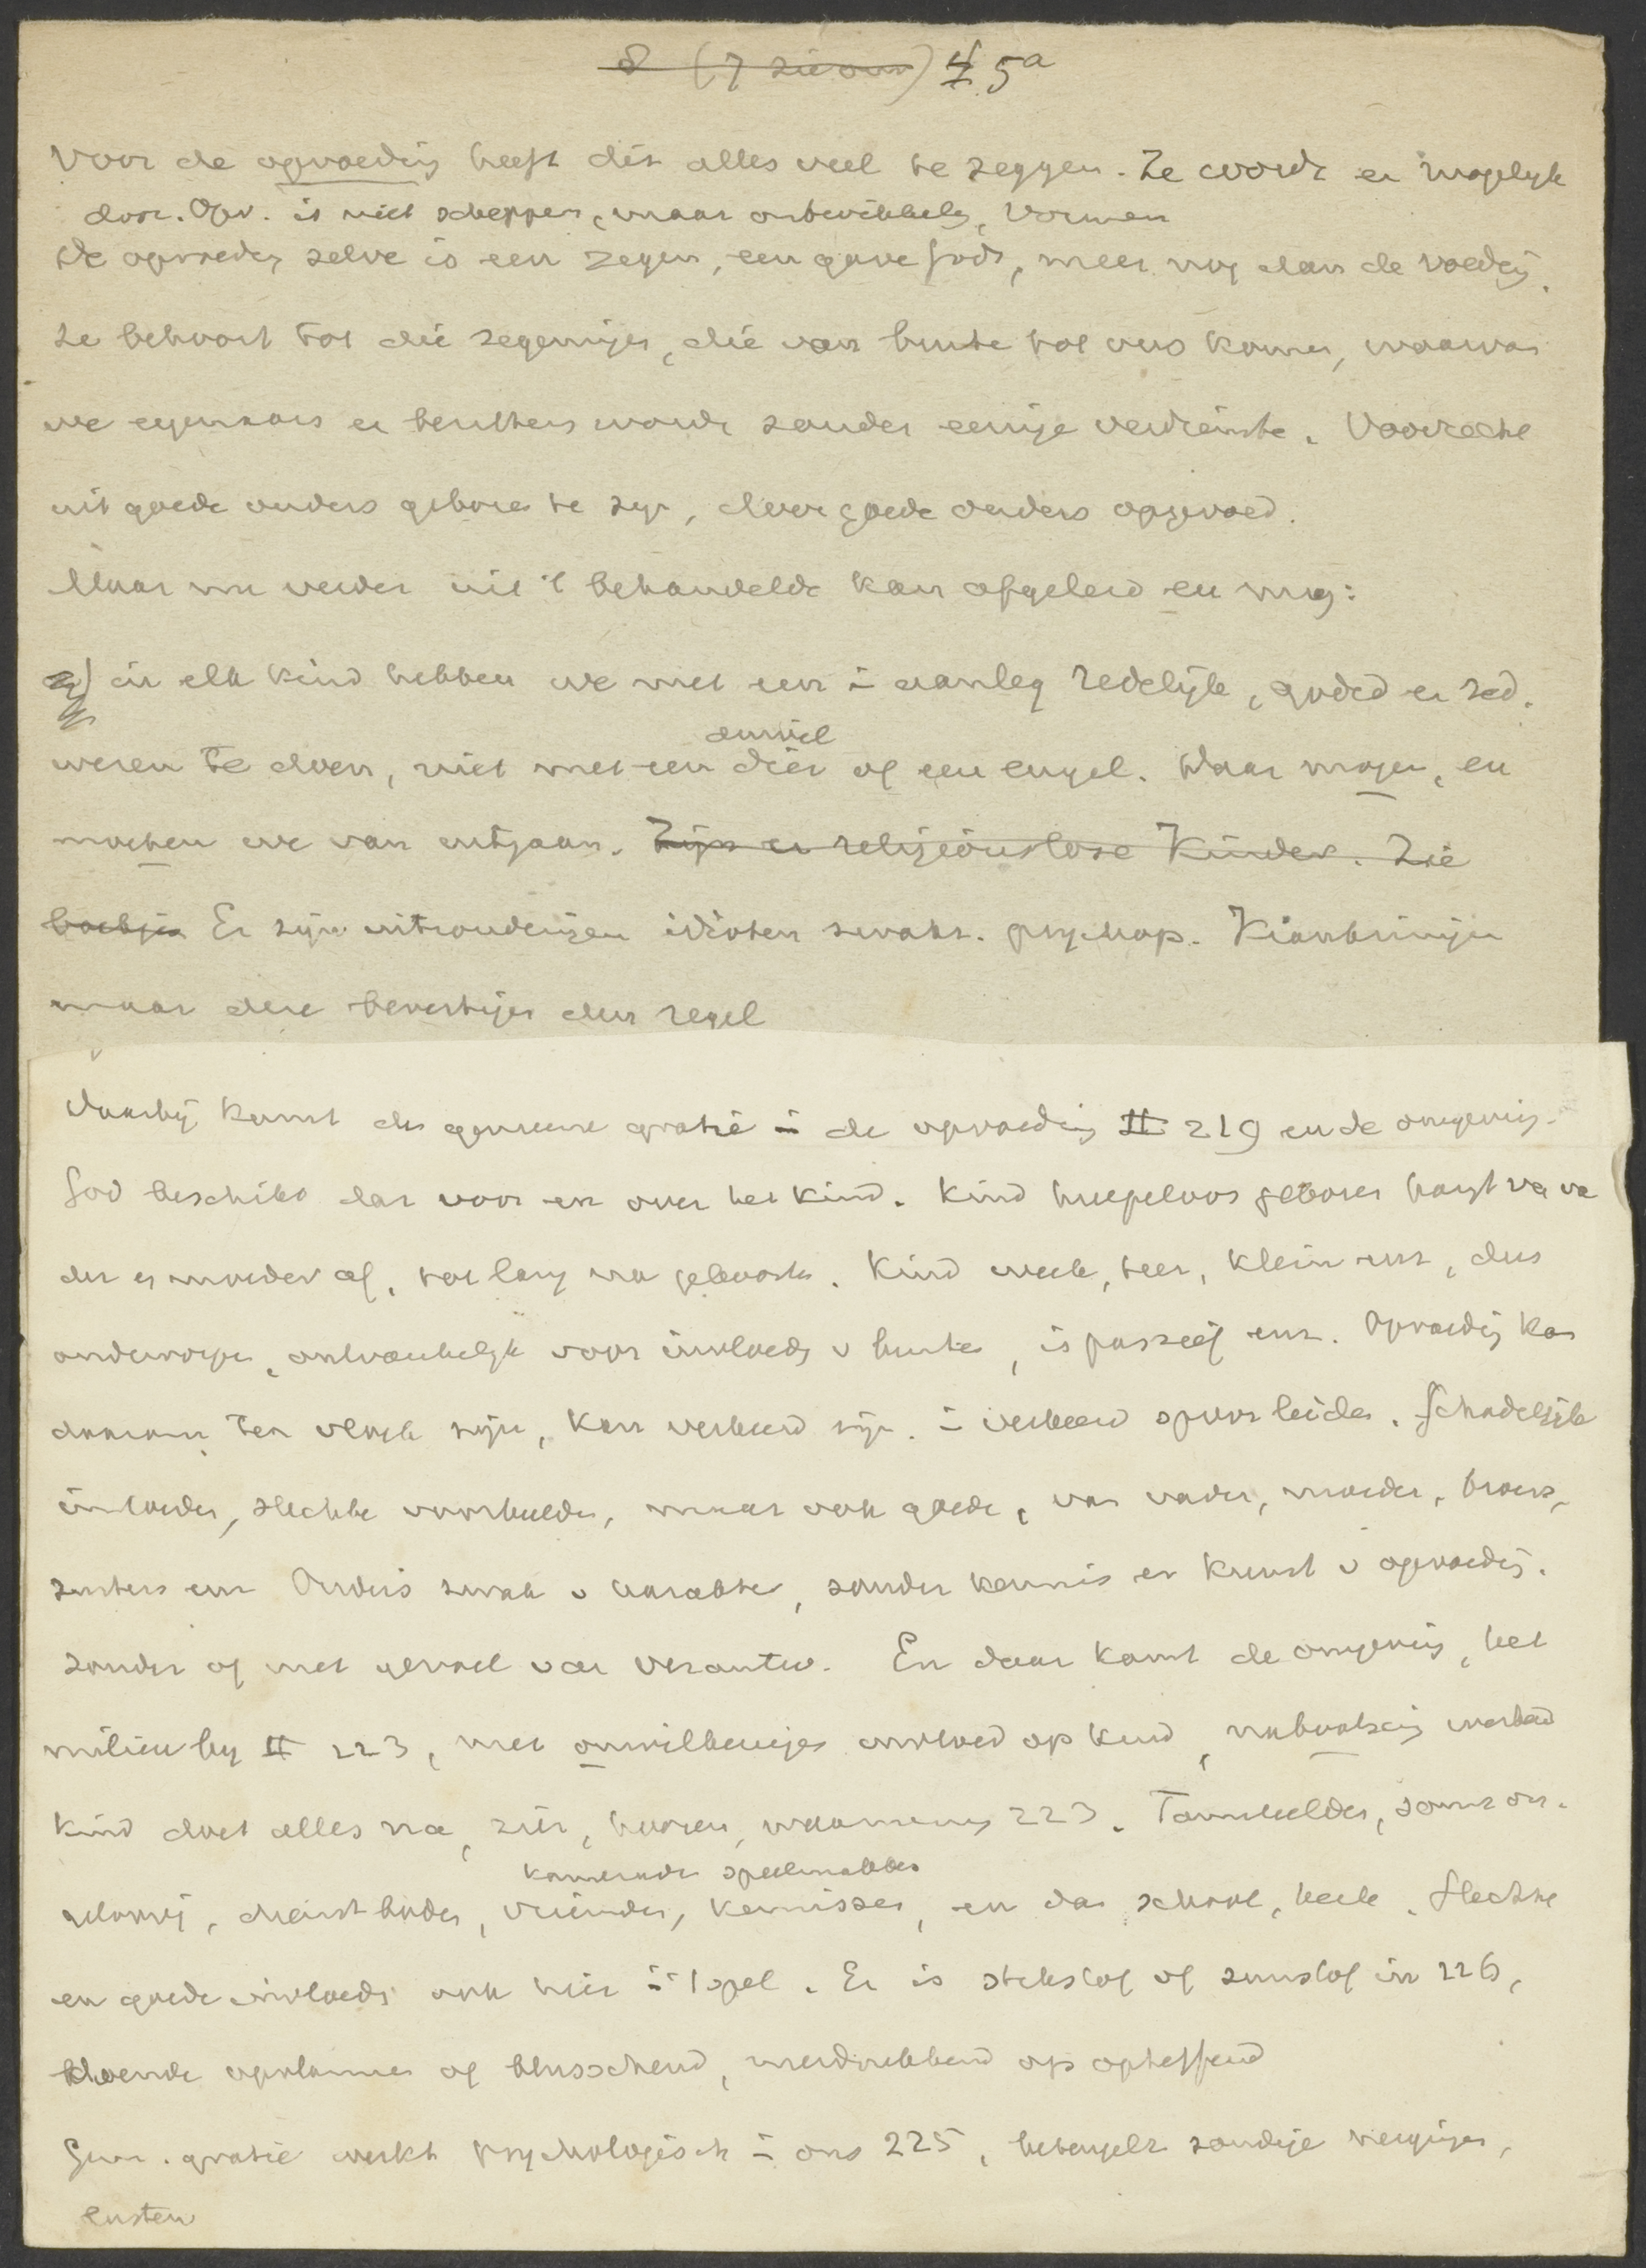 8 (7 zie ours) 4 5a
Voor de opvoeding heeft dit alles veel te zeggen. Ze wordt er mogelijk
door. Opv. is niet scheppen, maar ontwikkelen, vormen
De opvoeding zelve is een zegen, een gave Gods, meer nog dan de voeding.
Ze behoort tot die zegeningen, die van buiten tot ons komen, waarvan
we eigenaars en bezitters worden zonder eenige verdienste. Voorrecht
uit goede ouders geboren te zijn, door goede ouders opgevoed.
Maar nu verder uit 't behandelde kan afgeleid en mag:
in elk kind hebben we met een in aanleg redelijk, godsd. en zed.
duivel
wezen te doen, niet met een dier of een engel. Daar mogen, en
moeten we van uitgaan. Zijn er religieuslose Kinder. Zie
boekje Er zijn uitzonderingen idioten zwakz. psychop. Krankzinnigen
maar deze bevestigen den regel
Daarbij komt de gemeene gratie in de opvoeding II 219 en de omgeving.
God beschikt dar voor en over het kind. Kind hulpeloos geboren hangt van va
der en moeder af, tot lang na geboorte. Kind week, teer, klein enz, dus
onderworpen, ontvankelijk voor invloeden v buiten, is passief enz. Opvoeding kan
daarom ten vloek zijn, kan verkeerd zijn. in verkeerd spoor leiden. Schadelijke
invloeden, slechte voorbeelden, maar ook goede, van vader, moeder, broers,
zusters enz Ouders zwak v karakter, zonder kennis en kunst v opvoeding.
zonder of met gevoel van verantw. En daar komt de omgeving, het
milieu bij II 223, met onwillekeurigen invloed op kind, nabootsing
Kind doet alles na, zien, hooren, waarneming 223. Voorbeelden, soms on-
kameraden speelmakkers
dienstboden, vrienden, kennissen, en dan school, kerk. Slechte
en goede invloeden ook hier in 't spel. Er is stikstof of zuurstof in 226,
doende opvlammen of blusschend, neerdrukkend of opheffend
Gem. gratie werkt psychologisch in ons 225, beteugelt zondige neigingen,
lusten